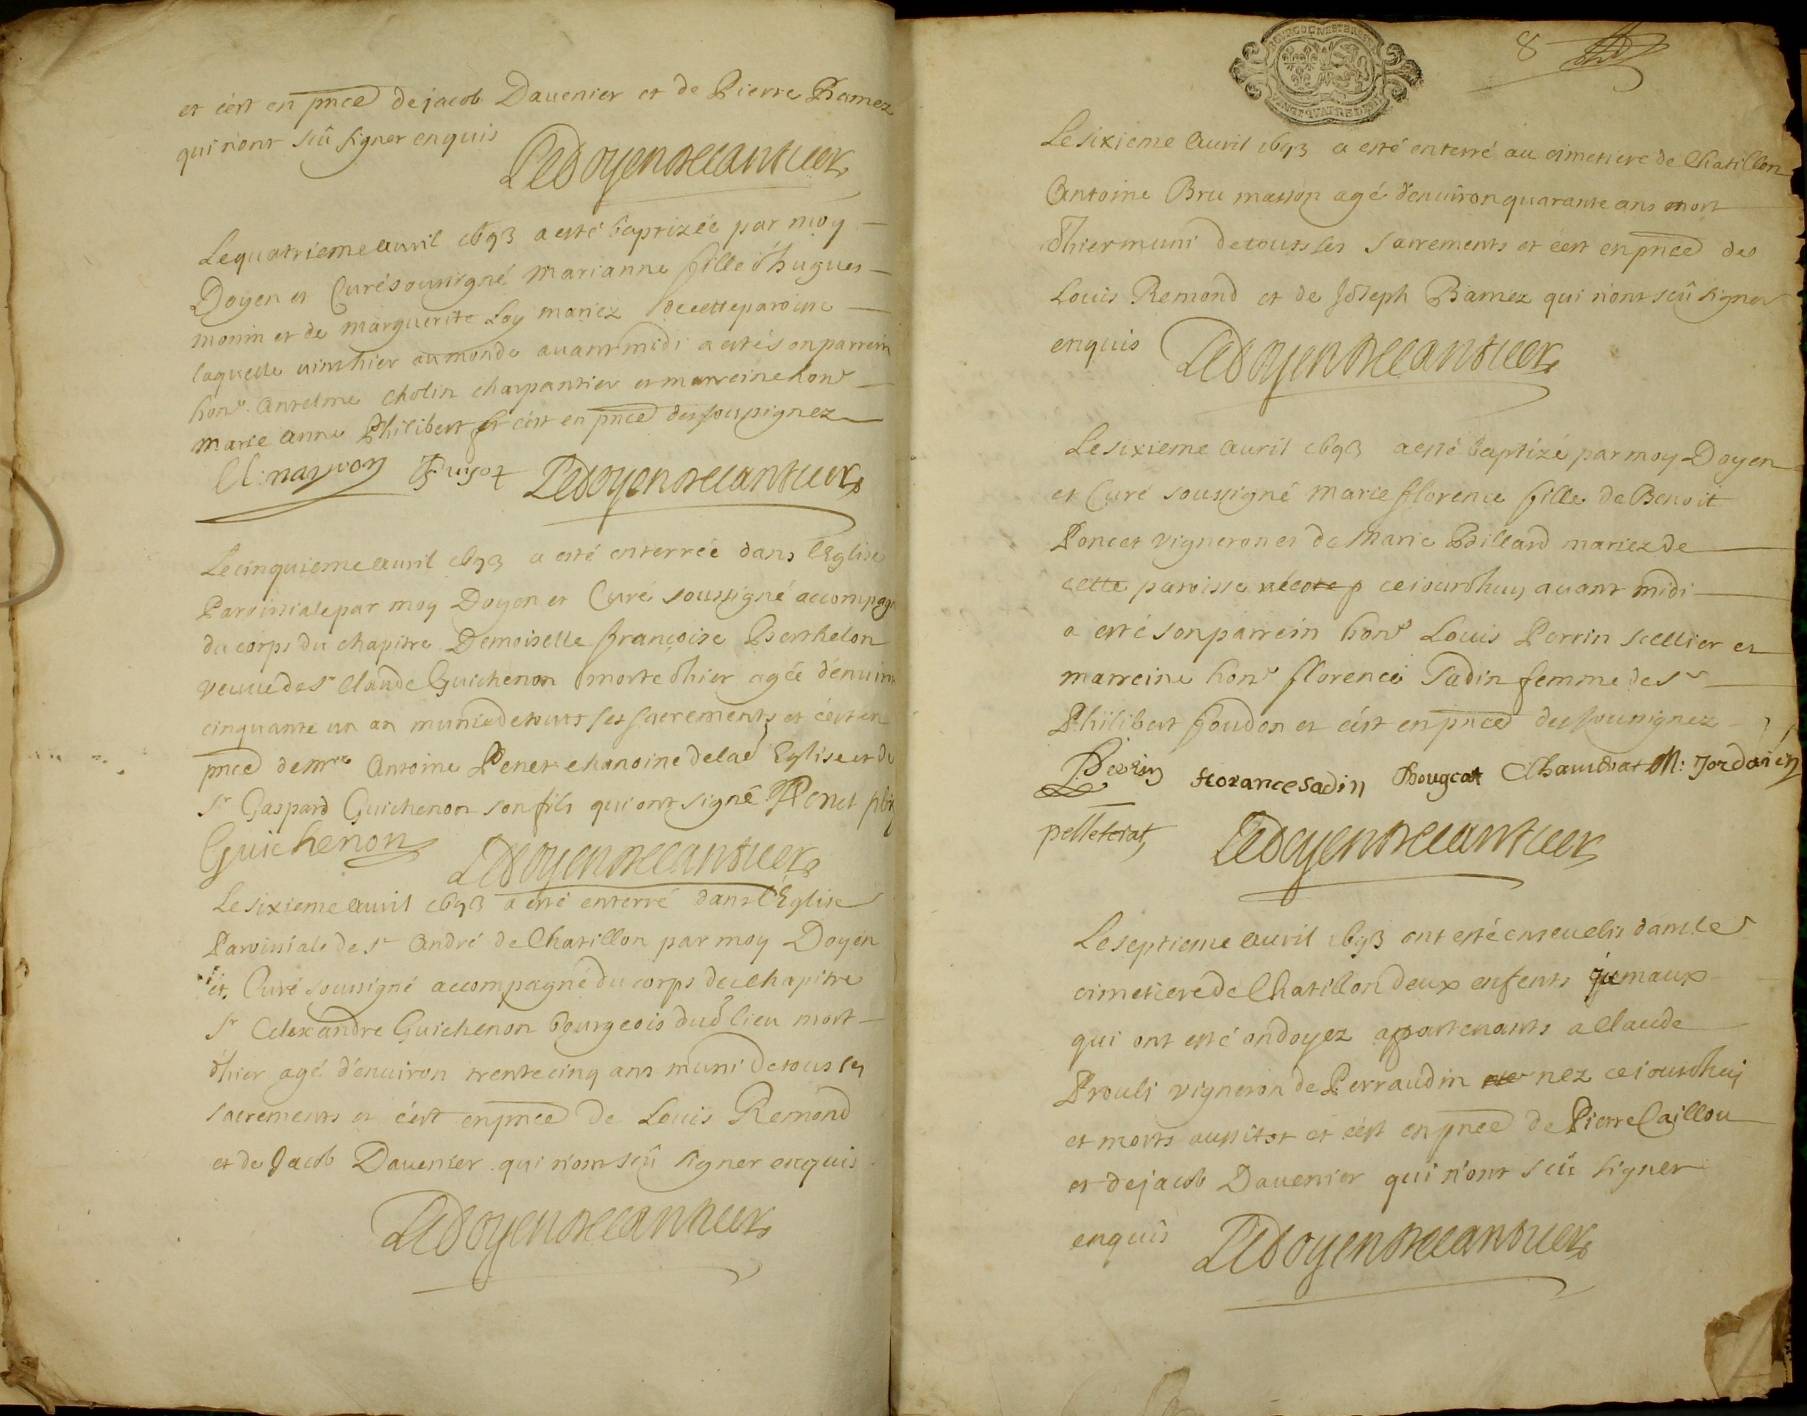 et c'est en pnce de jacob Dauenier et de Pierre Bamez
qui n'ont sçû signer enquis
Ledoyen Decantuern
Le quatrieme auril 1693 a esté baptizée par moy
Doyen et Curé soussigné Marianne fille d'hugues
monin et de marguerite Loy mariez de cette paroisse
laquelle vint hier au monde auant midi a esté son parrein
hon. Antelme Cholin charpantier et marreine hon
marie anne Philibert et c'est en pnce des soussignez
Cl: nayuon Pujot Ledoyen Decantuern
Le cinquieme auril 1693 a esté enterrée dans l'Eglise
Paroissiale par moy Doyen et Curé soussigné accompagné
du corps du chapitre Demoiselle françoise Berthelon
veuue de Sr Claude Guichenon morte d'hier agée d'enuiron
cinquante un an munie de touts ses sacrements et c'est en
pnce de mre Antoine Penet chanoine de lad Eglise et de
Sr Gaspard Guichenon son fils qui ont signé Penet pbre
Guichenon Ledoyen Decantuern
Le sixieme auril 1693 a esté enterré dans l'Eglise
Paroissiale de St André de Chatillon par moy Doyen
et Curé soussigné accompagné du corps du Chapitre
Sr Alexandre Guichenon bourgeois dud lieu mort
d'hier agé d'enuiron trente cinq ans muni de tous les
sacrements et c'est en pnce de Louis Remond
et de Jacob Dauenier qui n'ont sçû signer enquis
Ledoyen Decantuern
8
Le sixieme auril 1693 a esté enterré au cimetiere de Chatillon
Antoine Bru masson agé d'enuiron quarante ans mort
d'hier muni de touts les sacrements et c'est en pnce de
Louis Remond et de Joseph Bamez qui n'ont sçû signer
enquis Ledoyen Decantuern
Le sixieme auril 1693 a esté baptizé par moy Doyen
et Curé soussigné Marie florence fille de Benoit
Poncet vigneron et de Marie Billard mariez de
cette paroisse née ce iourd'huy auant midi
a esté son parrein hon Louis Perrin sellier et
marreine hon florence Sadin femme de Sr
Philibert foudon et c'est en pnce des soussignez
Perrin florance Sadin Bougeat Chambat M: Jordain
pelleterat Ledoyen Decantuern
Le septieme auril 1693 ont esté enseuelis dans le
cimetiere de Chatillon deux enfents jumaux
qui ont esté ondoyez appartenants a Claude
Prouli vigneron de Perraudin nez ce iourd'huy
et morts aussitot et c'est en pnce de Pierre Caillou
et de jacob Dauenier qui n'ont sçû signer
enquis Ledoyen Decantuern